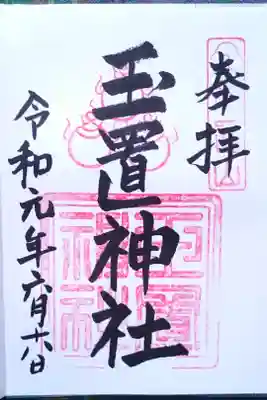 奉拝
玉置神社
令和元年六月十六日